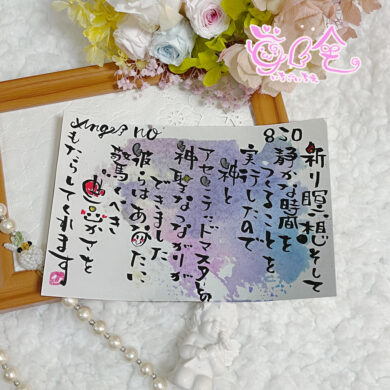 Angel no
830
祈り瞑想そして
静かな時間を
つくることを
実行したので
神と
アセンデッドマスタとの
神聖なつながりが
できました
彼らはあなたに
驚くべき
豊かさを
もたらしてくれます